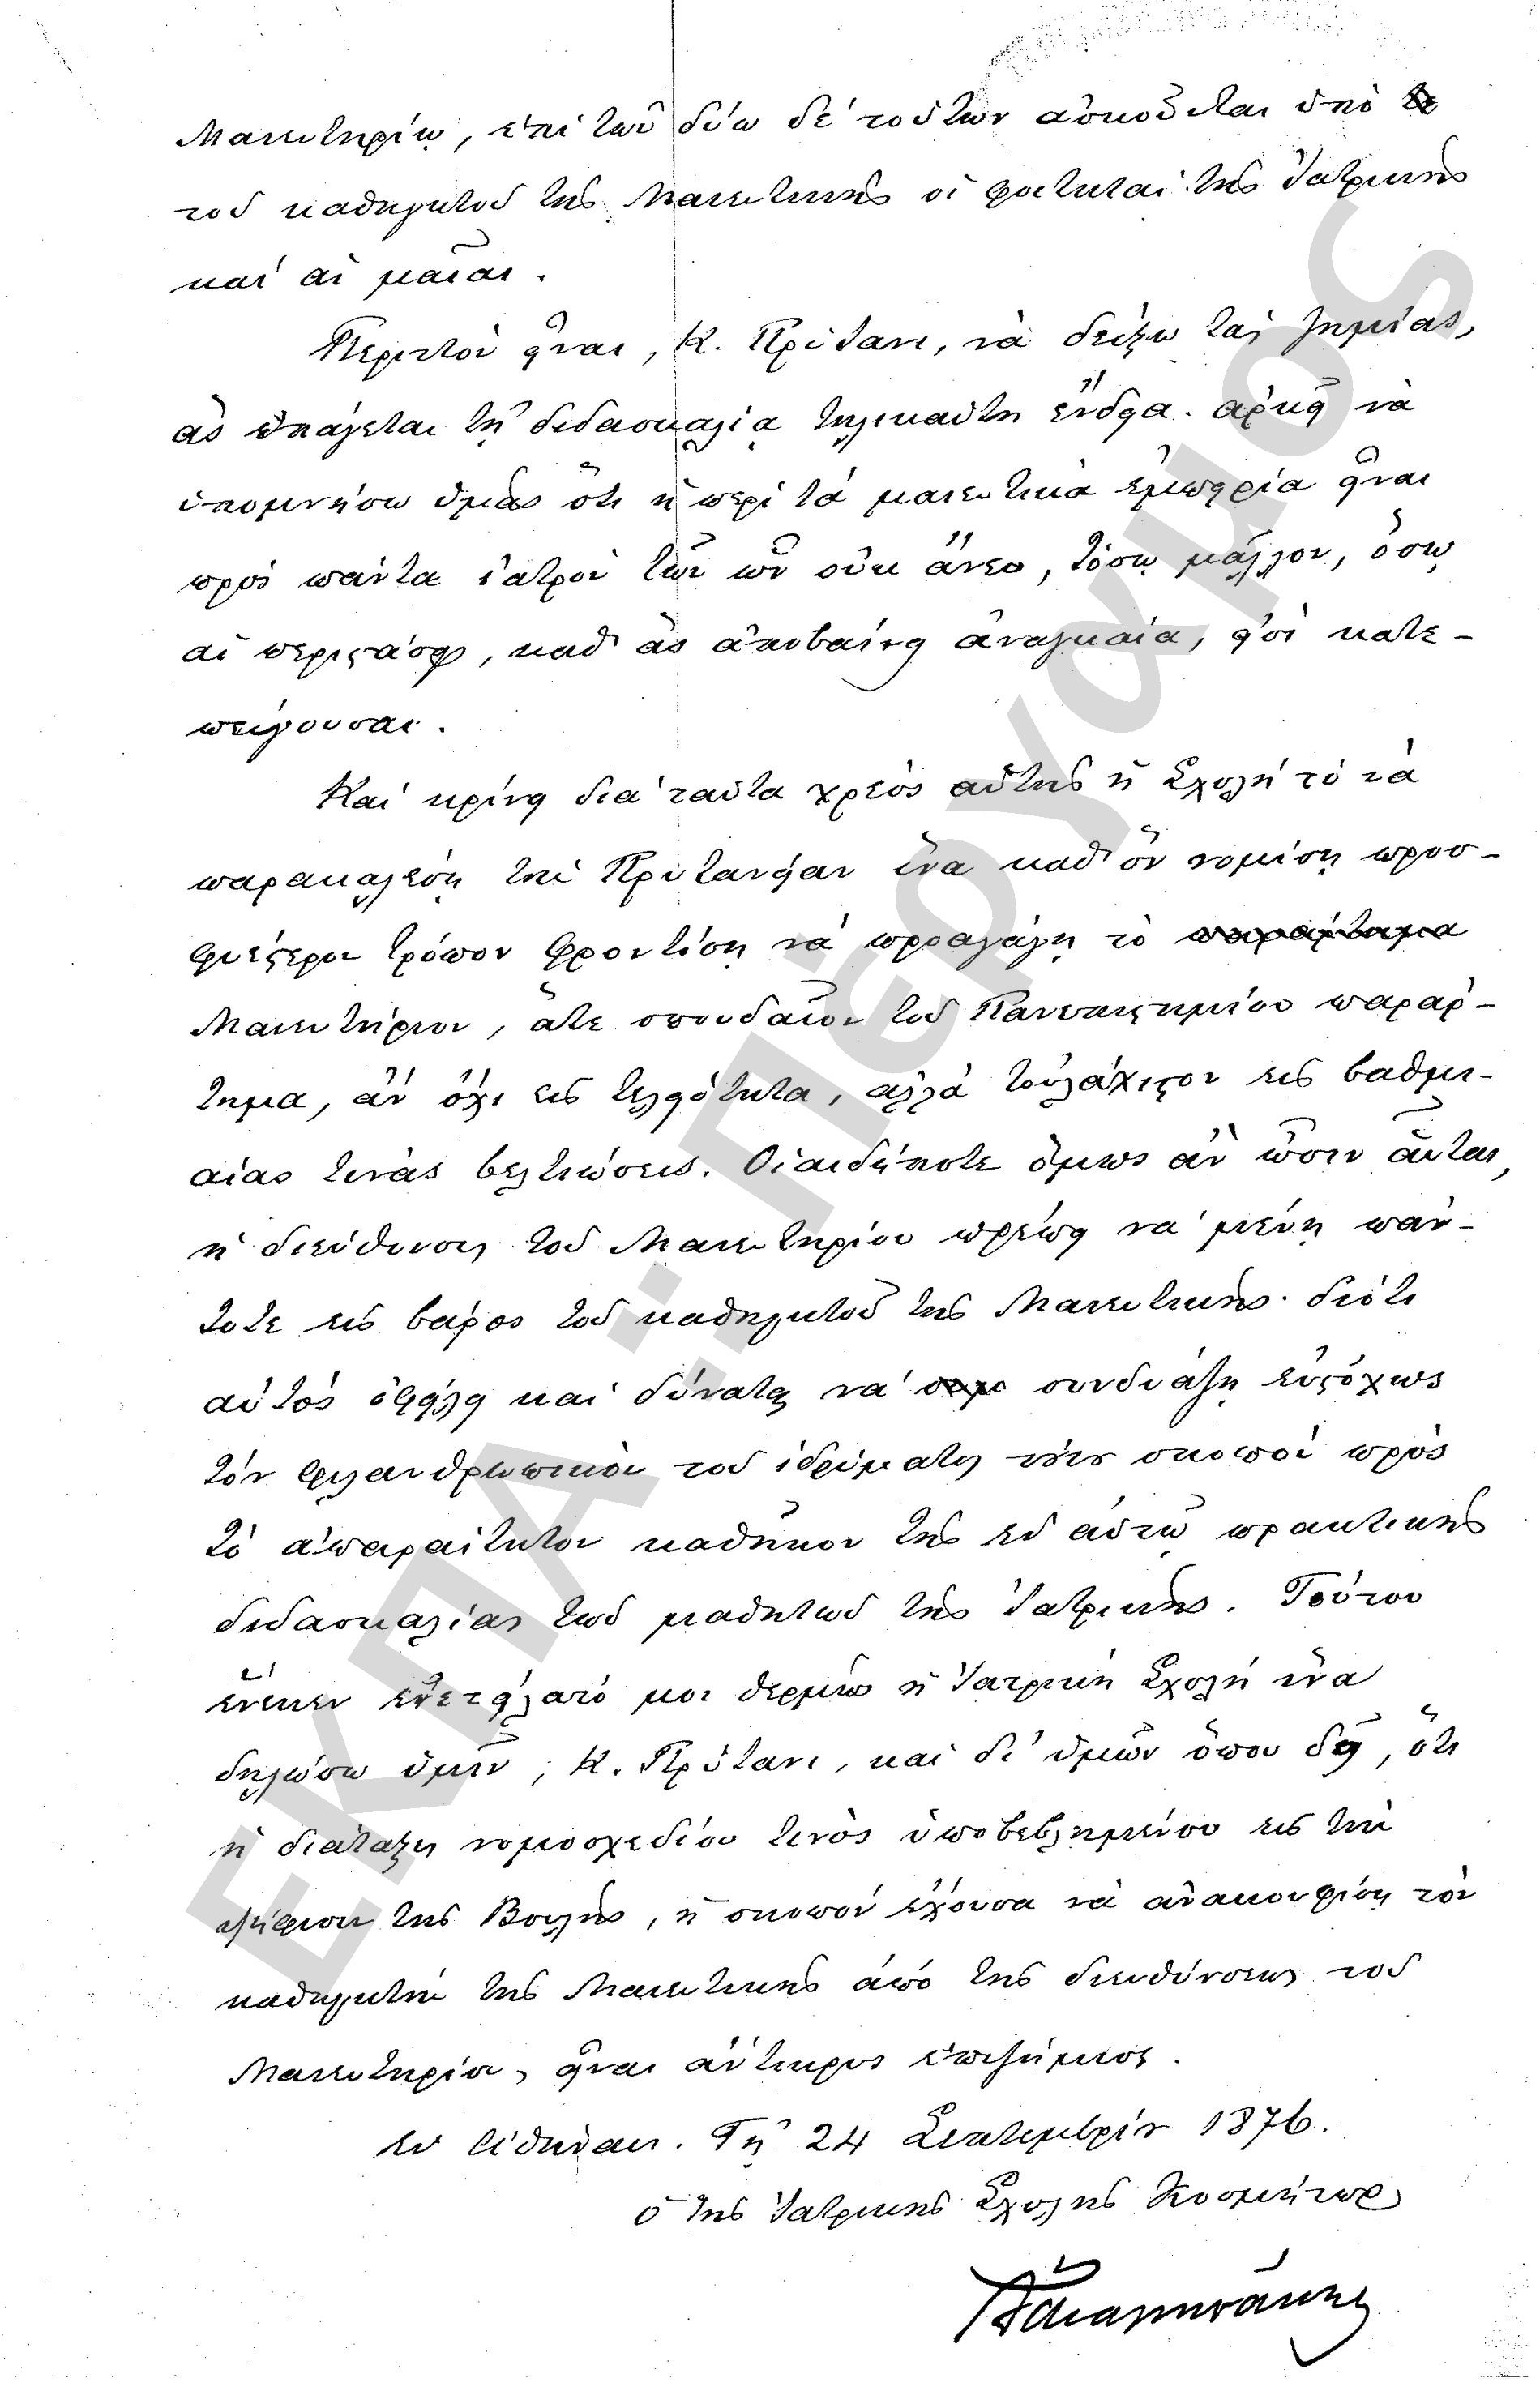 Μαιευτηρίῳ, ἐπὶ τῶν δύω δὲ τούτων ἀσκοῦνται ὑπὸ
τοῦ καθηγητοῦ τῆς Μαιευτικῆς οἱ φοιτηταὶ τῆς Ἰατρικῆς
καὶ αἱ μαῖαι.
Περιττὸν εἶναι, Κ. Πρύτανι, νὰ δείξω τὰς ζημίας,
ἃς ἐπάγεται τῇ διδασκαλίᾳ τηλικαύτη ἔνδεια. ἀρκεῖ νὰ
ὑπομνήσω ὑμᾶς ὅτι ἡ περὶ τὰ μαιευτικὰ ἐμπειρία εἶναι
πρὸς πάντα ἰατρὸν τῶν ὧν οὐκ ἄνευ, τόσῳ μᾶλλον, ὅσῳ
αἱ περιστάσεις, καθ' ἃς ἀποβαίνει ἀναγκαία, εἰσὶ κατε-
πείγουσαι.
Καὶ κρίνει διὰ ταῦτα χρέος αὑτῆς ἡ Σχολὴ τὸ νὰ
παρακαλέσῃ τὴν Πρυτανείαν ἵνα καθ' ὃν νομίσῃ προσ-
φυέστερον τρόπον φροντίσῃ νὰ προαγάγῃ τὸ παράρτημα
Μαιευτήριον, ἅτε σπουδαῖον τοῦ Πανεπιστημίου παράρ-
τημα, ἂν ὄχι εἰς τελειότητα, ἀλλὰ τοὐλάχιστον εἰς βαθμι-
αίας τινὰς βελτιώσεις. Οἱαιδήποτε ὅμως ἂν ὦσιν αὗται,
ἡ διεύθυνσις τοῦ Μαιευτηρίου πρέπει νὰ μένῃ πάν-
τοτε εἰς βάρος τοῦ καθηγητοῦ τῆς Μαιευτικῆς· διότι
αὐτὸς ὀφείλει καὶ δύναται νὰ συνδυάζῃ εὐστόχως
τὸν φιλανθρωπικὸν τοῦ ἱδρύματος σκοπὸν πρὸς
τὸ ἀπαραίτητον καθῆκον τῆς ἐν αὐτῷ πρακτικῆς
διδασκαλίας τῶν μαθητῶν τῆς Ἰατρικῆς. Τούτου
ἕνεκεν ἐνετείλατό μοι θερμῶς ἡ Ἰατρικὴ Σχολὴ ἵνα
δηλώσω ὑμῖν, Κ. Πρύτανι, καὶ δι' ὑμῶν ὅπου δεῖ, ὅτι
ἡ διάταξις νομοσχεδίου τινὸς ὑποβεβλημένου εἰς τὴν
ψήφισιν τῆς Βουλῆς, ἡ σκοπὸν ἔχουσα νὰ ἀνακουφίσῃ τὸν
καθηγητὴν τῆς Μαιευτικῆς ἀπὸ τῆς διευθύνσεως τοῦ
Μαιευτηρίου, εἶναι ἄντικρυς ἐπιζήμιος.
Ἐν Ἀθήναις. Τῇ 24 Σεπτεμβρίου 1876.
Ὁ τῆς Ἰατρικῆς Σχολῆς Κοσμήτωρ
ΕΚΠΑ - Πέργαμος